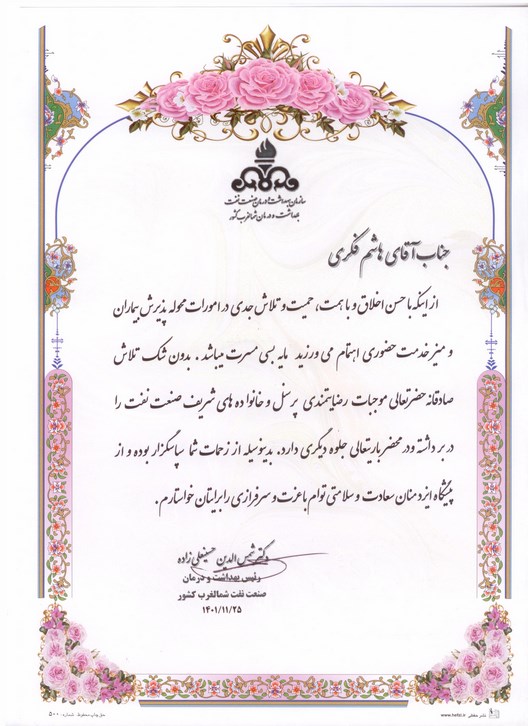 سازمان بهداشت و درمان صنعت نفت
بهداشت و درمان شمالغرب کشور
جناب آقای هاشم فکری
از اینکه با حسن اخلاق و با همت، حمیت و تلاش جدی در امورات محوله پذیرش بیماران
و میز خدمت حضوری اهتمام می ورزید مایه بسی مسرت میباشد . بدون شک تلاش
صادقانه حضرتعالی موجبات رضایتمندی پرسنل و خانواده های شریف صنعت نفت را
در بر داشته ودر محضر باریتعالی جلوه دیگری دارد. بدینوسیله از زحمات شما سپاسگزار بوده و از
پیشگاه ایزد منان سعادت و سلامتی توام با عزت و سرفرازی را برایتان خواستارم.
دکتر شمس الدین حسینعلی زاده
رئیس بهداشت و درمان
صنعت نفت شمالغرب کشور
۱۴۰۱/۱۱/۲۵
حق چاپ محفوظ شماره: ۵۰۰